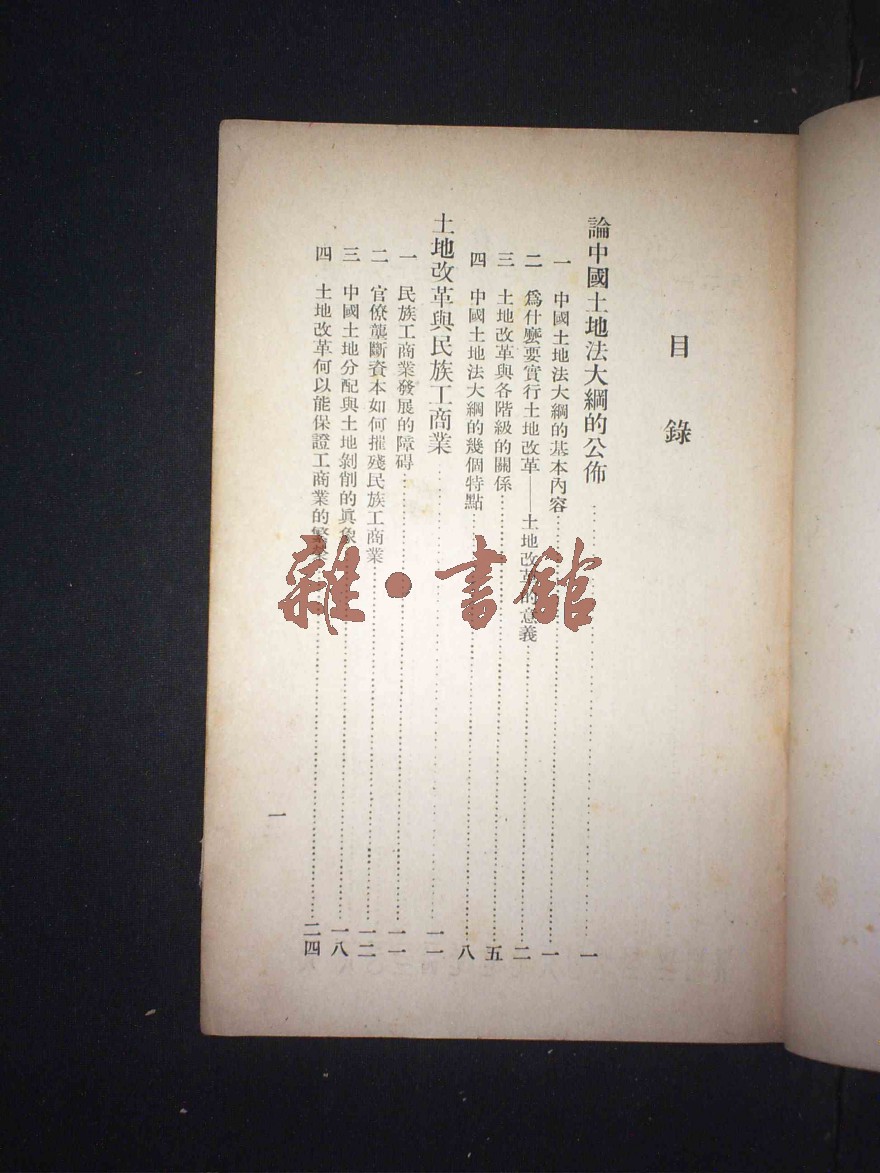 目錄
論中國土地法大綱的公佈……一
一 中國土地法大綱的基本內容……一
二 爲什麼要實行土地改革——土地改革的意義……二
三 土地改革與各階級的關係……五
四 中國土地法大綱的幾個特點……八
土地改革與民族工商業……一一
一 民族工商業發展的障碍……一一
二 官僚龔斷資本如何摧殘民族工商業……一二
三 中國土地分配與土地剝削的眞象……一八
四 土地改革何以能保證工商業的繁……二四
一
雜·書館